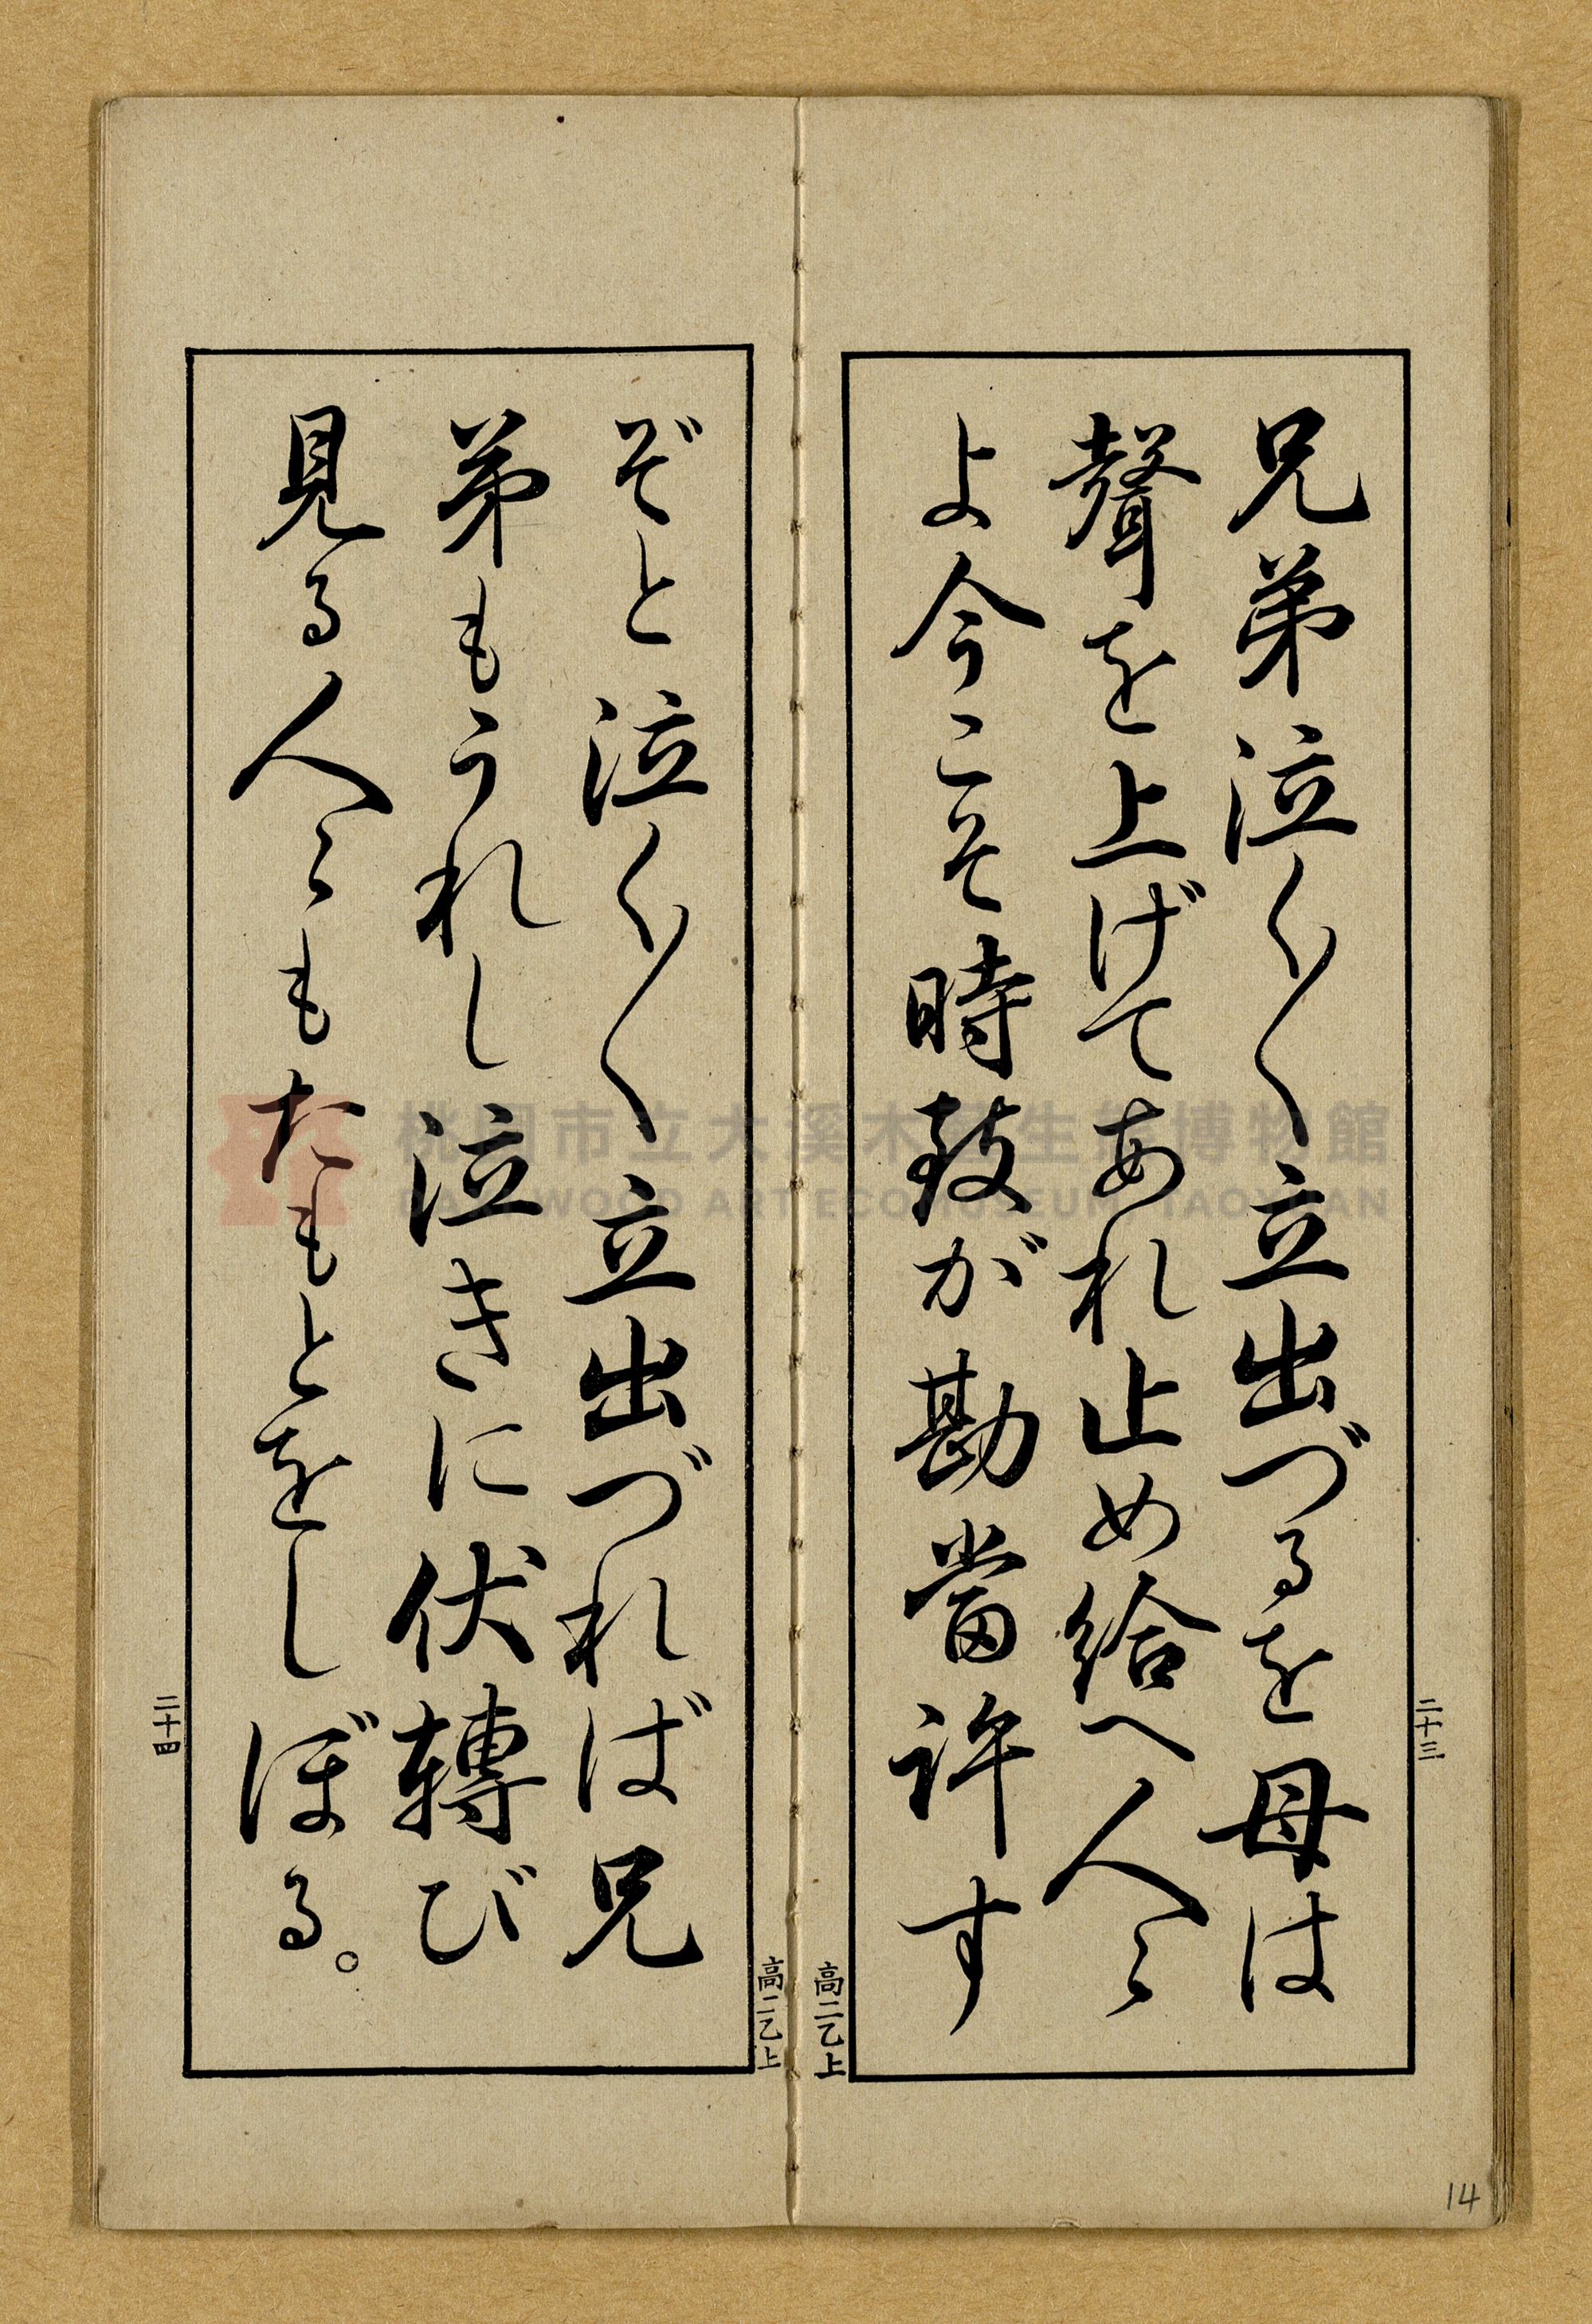 兄弟泣く〱立出づるを母は
聲を上げてあれ止め給へ人々
よ今こそ時致が勘當許す
ぞと泣く〱立出づれば兄
弟もうれし泣きに伏轉び
見る人々もたもとをしぼる。
二十三
高二乙上
高二乙上
二十四
14
桃園市立大溪木藝生態博物館
DAXI WOOD ART ECOMUSEUM, TAOYUAN